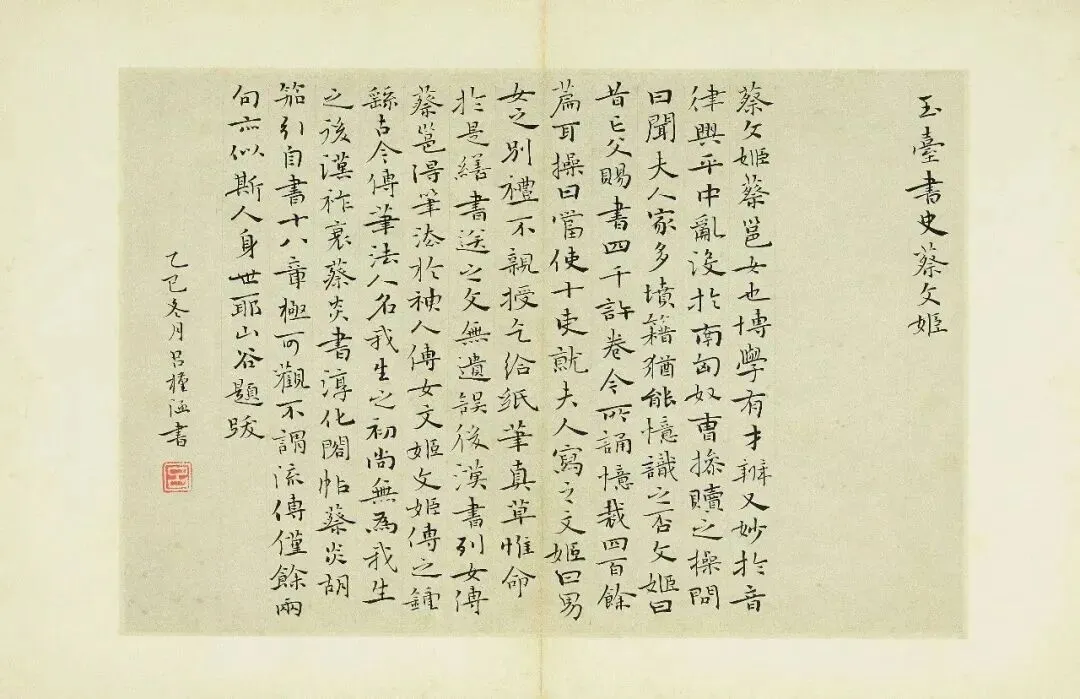 玉臺書史蔡文姬
蔡文姬蔡邕女也博學有才辯又妙於音
律興平中亂没於南匈奴曹操贖之操問
曰聞夫人家多墳籍猶能憶識之否文姬曰
昔亡父賜書四千許卷今所誦憶裁四百餘
篇耳操曰當使十吏就夫人寫之文姬曰男
女之別禮不親授乞給紙筆真草惟命
於是繕書送之文無遺誤後漢書列女傳
蔡邕得筆法於神人傳女文姬文姬傳之鍾
繇古今傳筆法人名我生之初尚無為我生
之後漢祚衰蔡炎書淳化閣帖蔡炎胡
笳引自書十八章極可觀不謂流傳僅餘兩
句亦似斯人身世耶山谷題跋
乙巳冬月呂槿涵書